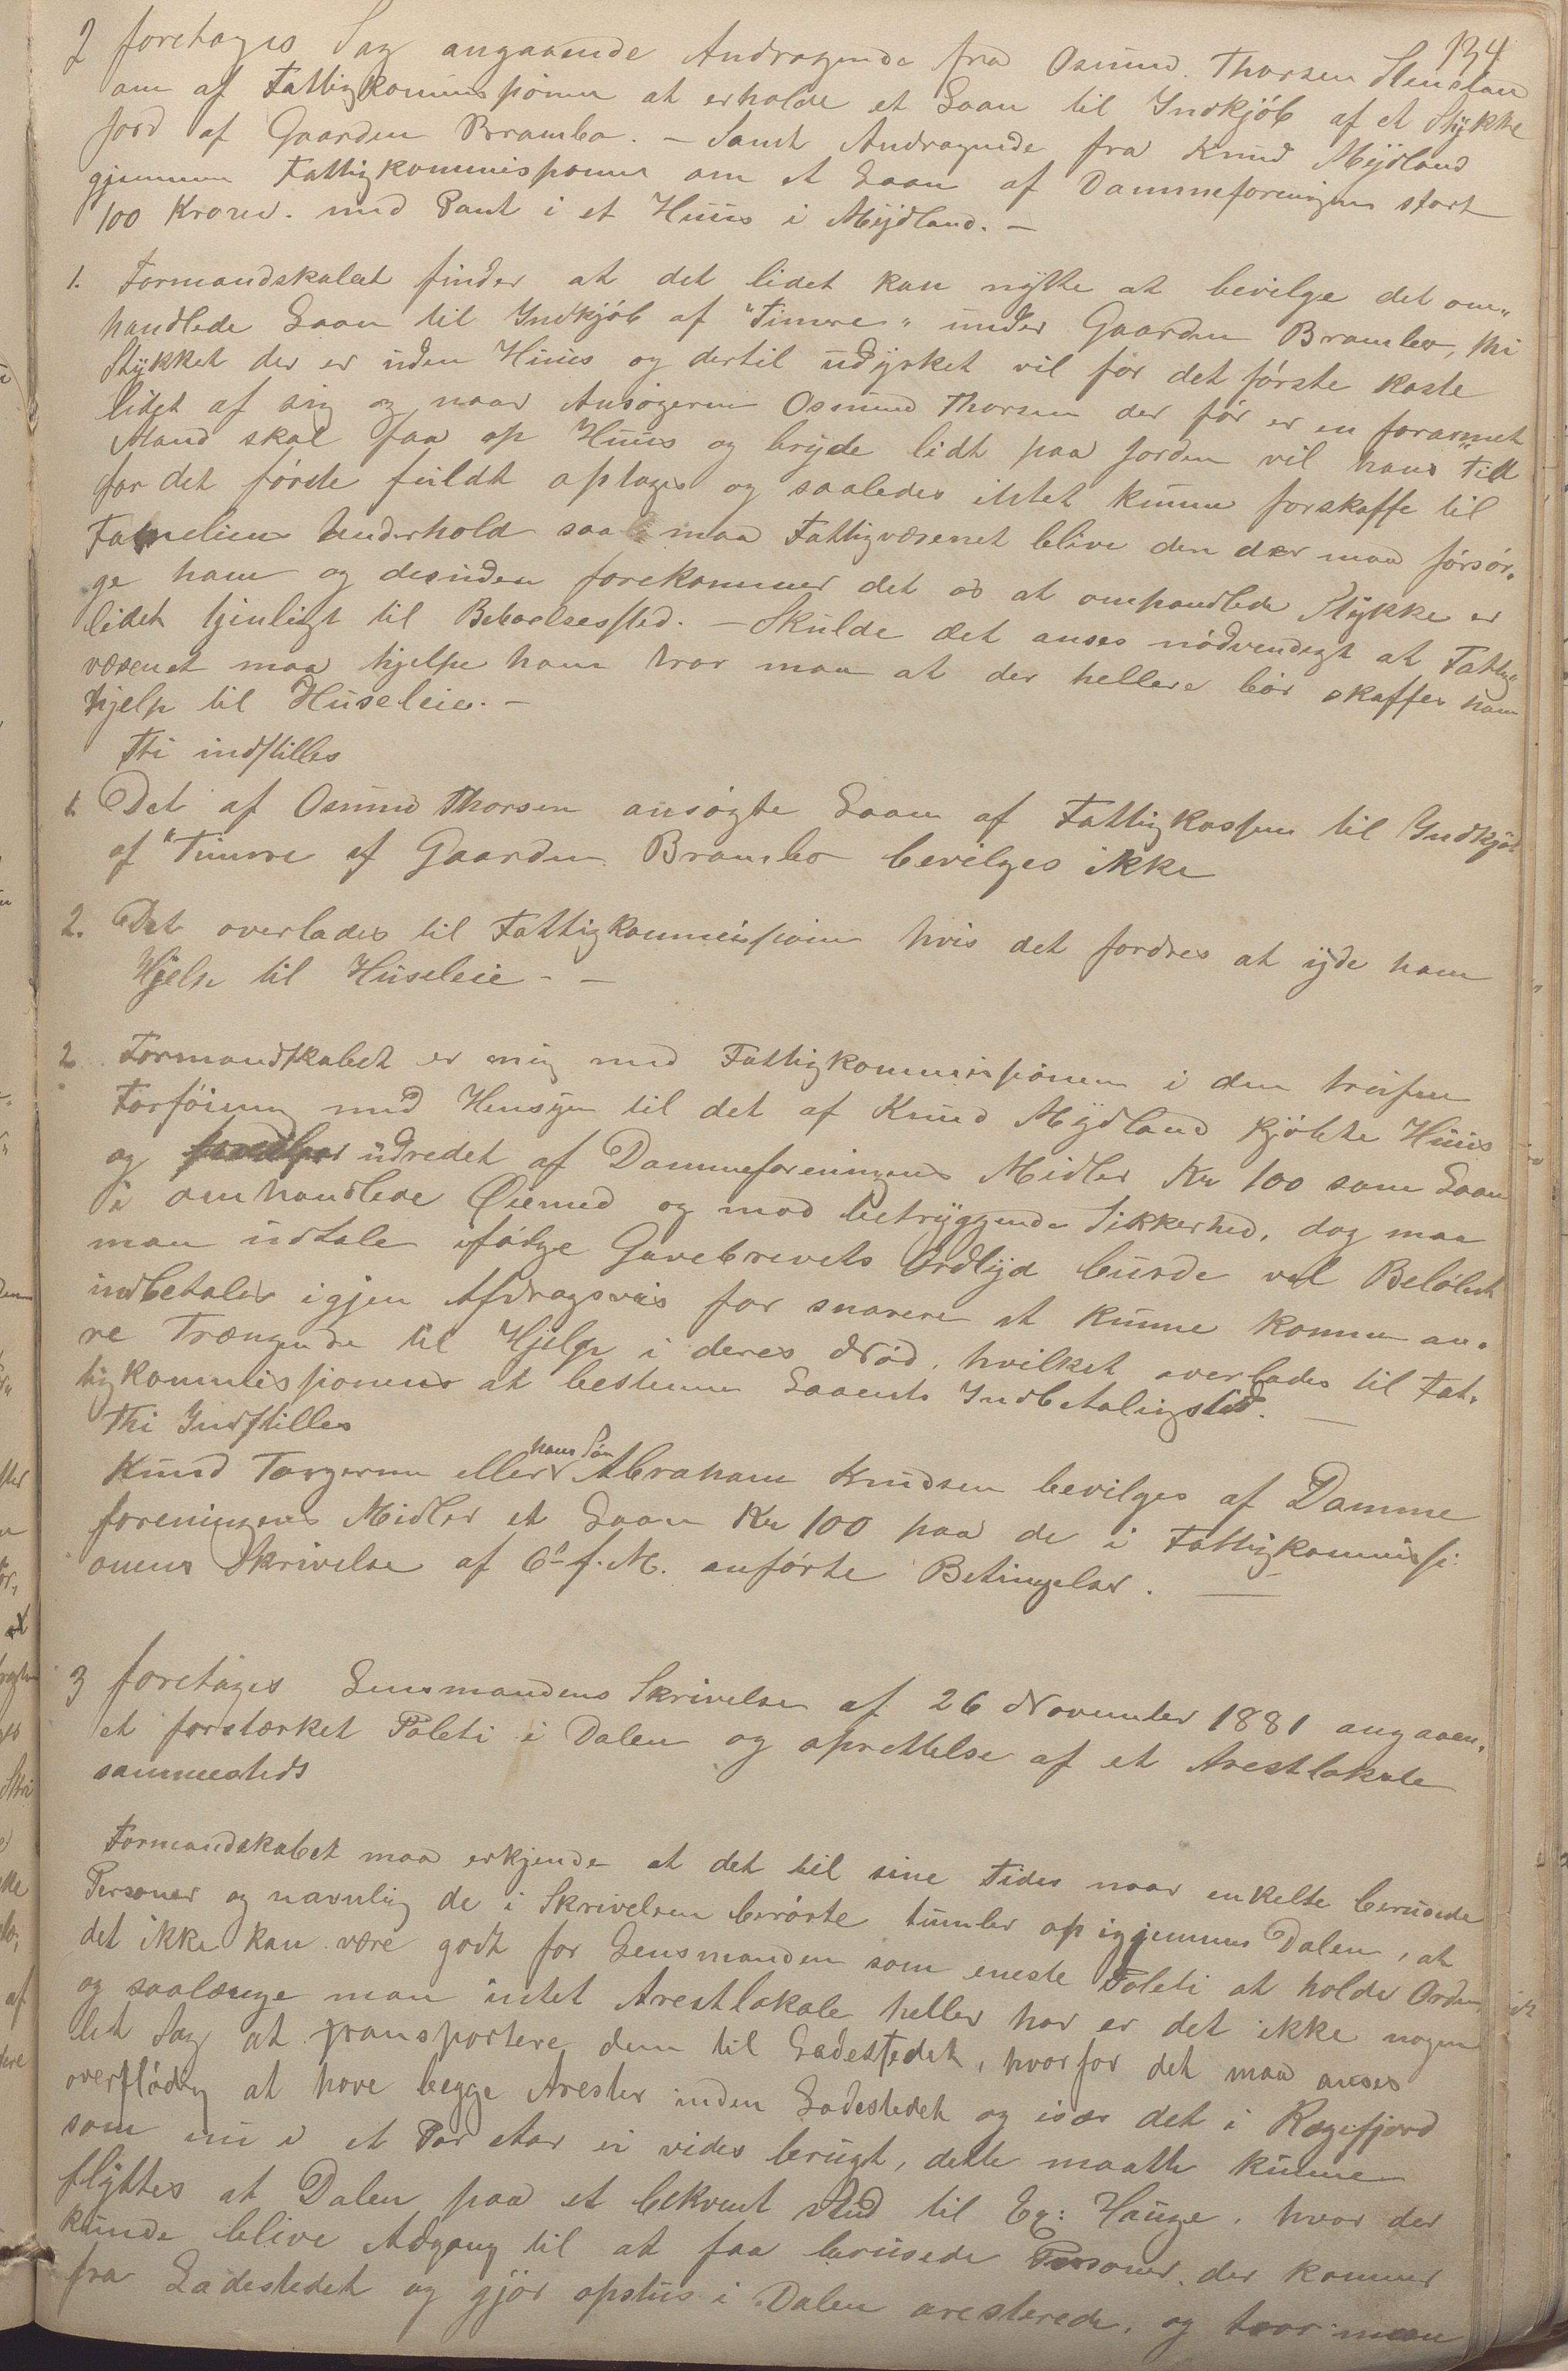 134
2 foretoges Sag angaaende Andragende fra Osmund Thorsen Stensland
om af Fattigkommissionen at erholde et Laan til Indkjöb af et Stykke
Jord af Gaarden Brambo. – Samt Andragende fra Knud Mydland
gjennem Fattigkommissionen om et Laan af Dammeforeningen stort
100 Kroner. med Pant i et Huus i Mydland. –
1. Formandskabet finder at det lidet kan nytte at bevilge det om„
handlede Laan til Indkjöb af "Timre" under Gaarden Brambo, thi
Stykket der er uden Huus og dertil udyrket vil for det förste kaste
lidet af sig og naar Ansögeren Osmund Thorsen der för er en forarmet
Mand skal faa op Huus og bryde lidt paa Jorden vil hans Tid
for det förste fuldt optages og saaledes intet kunne forskaffe til
Familiens Underhold saa maa Fattigvæsenet blive den der maa försör„
ge ham og desuden forekommer det os at omhandlede Stykke er
lidet tjenligt til Beboelsessted. – Skulde det anses nödvendigt at Fattig„
væsenet maa hjelpe ham tror man at der hellere bör skaffes ham
Hjelp til Huseleie. –
Thi indstilles
1. Det af Osmund Thorsen ansögte Laan af Fattigkassen til Indkjöb
af "Timre af Gaarden Brambo bevilges ikke
2. Det overlades til Fattigkommissionen hvis det fordres at yde ham
Hjelp til Huseleie – –
2. Formandskabet er enig med Fattigkommissionen i den trufne
Forföining med Hensyn til det af Knud Mydland kjöbte Huus
og udredet af Dammeforeningens Midler Kr 100 som Laan
i omhandlede Øiemed og mod betryggende Sikkerhed, dog maa
man udtale ifölge Gavebrevets Ordlyd burde vel Belöbet
indbetales igjen Afdragsvis for snarere at kunne komme an„
re Trængende til Hjelp i deres Nöd, hvilket overlades til Fat„
tigkommissionens at bestemme Laanets Indbetalingstid. –
Thi Indstilles
Knud Torgersen eller hans Sön Abraham Knudsen bevilges af Damme
foreningens Midler et Laan Kr 100 paa de i Fattigkommissi„
onens Skrivelse af 6te f. M. anförte Betingelser. –
3 foretoges Lensmandens Skrivelse af 26 November 1881 angaaen„
et forstærket Politi i Dalen og oprettelse af et Arestlokale
sammesteds
Formandskabet maa erkjende at det til sine Tider naar enkelte berusede
Personer og navnlig de i Skrivelsen berörte tumler op igjennem Dalen, at
det ikke kan være godt for Lensmanden som eneste Politi at holde Orden
og saalænge man intet Arestlokale heller har er det ikke nogen
let Sag at transportere dem til Ladestedet, hvorfor det maa anses
overflödig at have begge Arester inden Ladestedet og især det i Rægefjord
som nu i et Par Aar ei vides brugt, dette maatte kunne
flyttes at Dalen paa et bekvemt Sted til Ex: Hauge, hvor der
kunde blive Adgang til at faa berusede Personer, der kommer
fra Ladestedet og gjör opstus i Dalen aresterede, og tror man